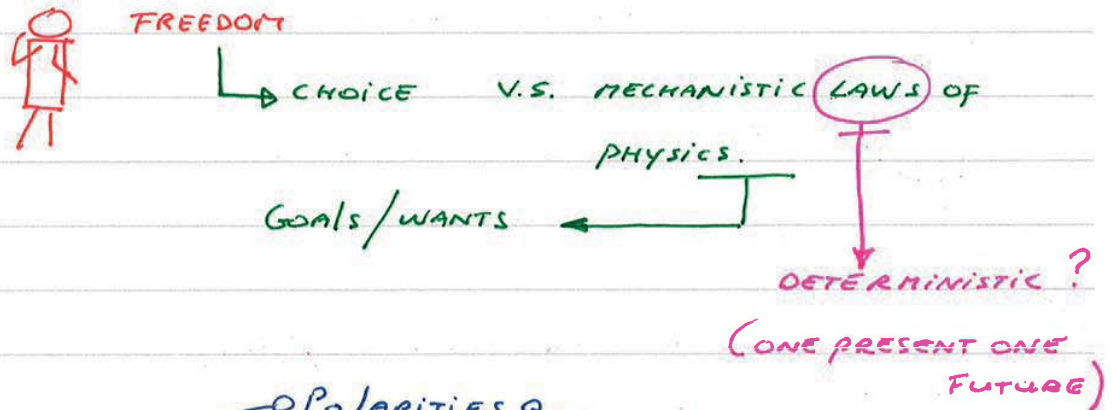 FREEDOM
CHOICE V.S. MECHANISTIC LAWS OF
PHYSICS.
GOALS/WANTS
DETERMINISTIC ?
(ONE PRESENT ONE
FUTURE)
POLARITIES